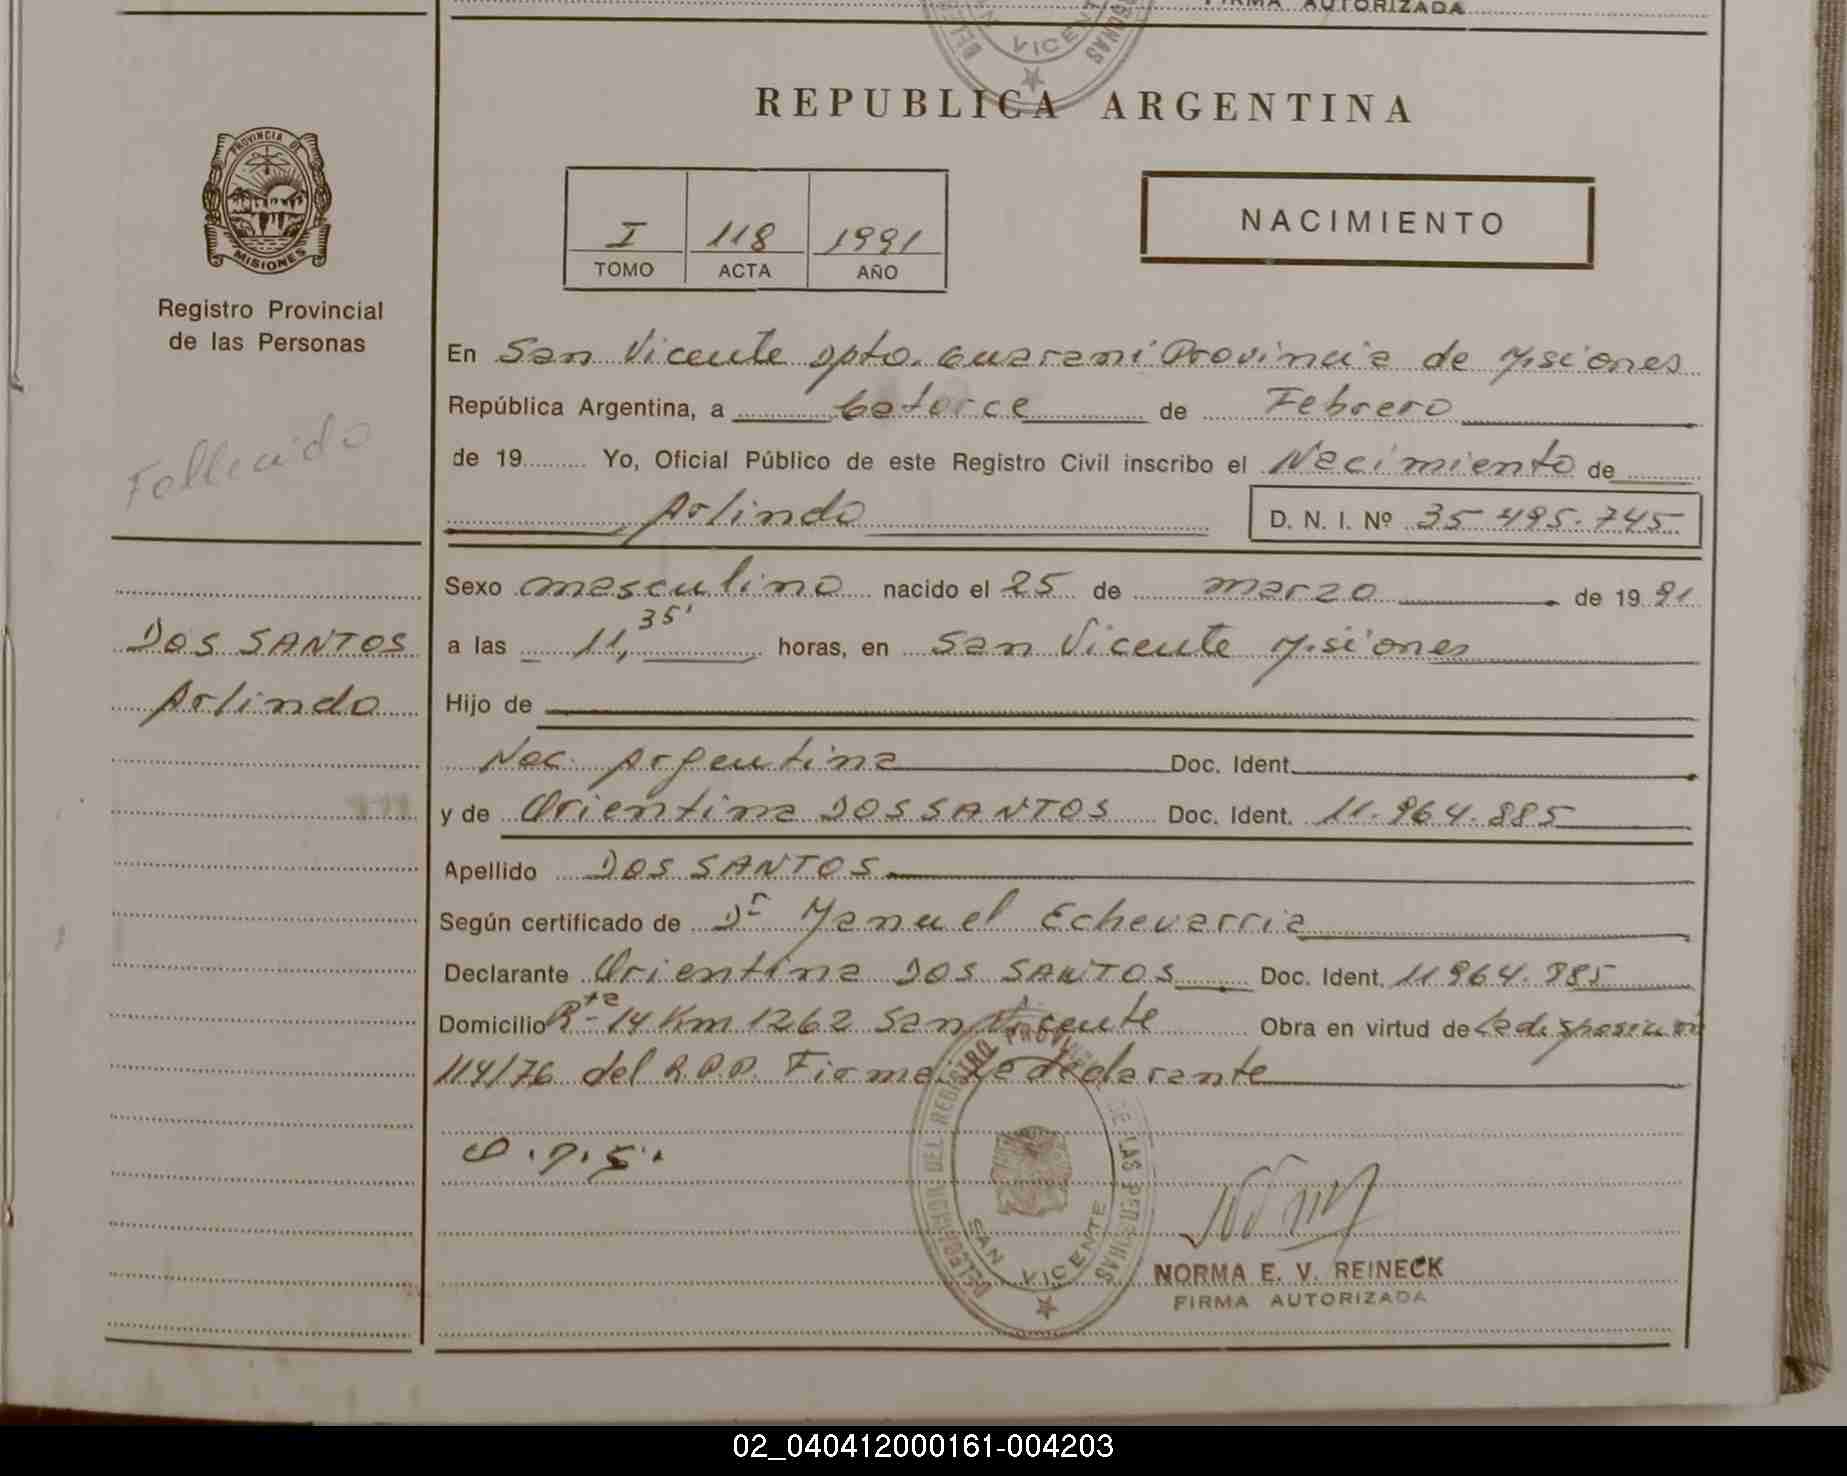 FIRMA AUTORIZADA
VICENTE
REPUBLICA ARGENTINA
PROVINCIA DE
MISIONES
Registro Provincial
de las Personas
I 118 1991
TOMO ACTA AÑO
NACIMIENTO
En San Vicente Dpto. Guarani Provincia de Misiones
República Argentina, a Catorce de Febrero
Fallecido
de 19 Yo, Oficial Público de este Registro Civil inscribo el Nacimiento de
Arlindo D. N. I. Nº 35.495.745
Sexo masculino nacido el 25 de marzo de 1991
DOS SANTOS
a las 11,35' horas, en San Vicente Misiones
Arlindo
Hijo de
Nac. Argentina Doc. Ident.
y de Orientina DOS SANTOS Doc. Ident. 11.964.885
Apellido DOS SANTOS
Según certificado de Dr Manuel Echevarria
Declarante Orientina DOS SANTOS Doc. Ident. 11.964.885
Domicilio Rta 14 Km 1262 San Vicente Obra en virtud de La disposición
114/76 del R.P.P. Firma La declarante
O.D.S.
DELEGACION DEL REGISTRO PROVINCIAL DE LAS PERSONAS
SAN VICENTE
NORMA E. V. REINECK
FIRMA AUTORIZADA
02_040412000161-004203